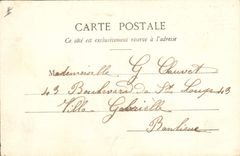 CARTE POSTALE
Ce côté est exclusivement réservé à l'adresse
Mademoiselle G Chauvet
43 Boulevard de St Loup 43
Villa Gabrielle
Banlieue